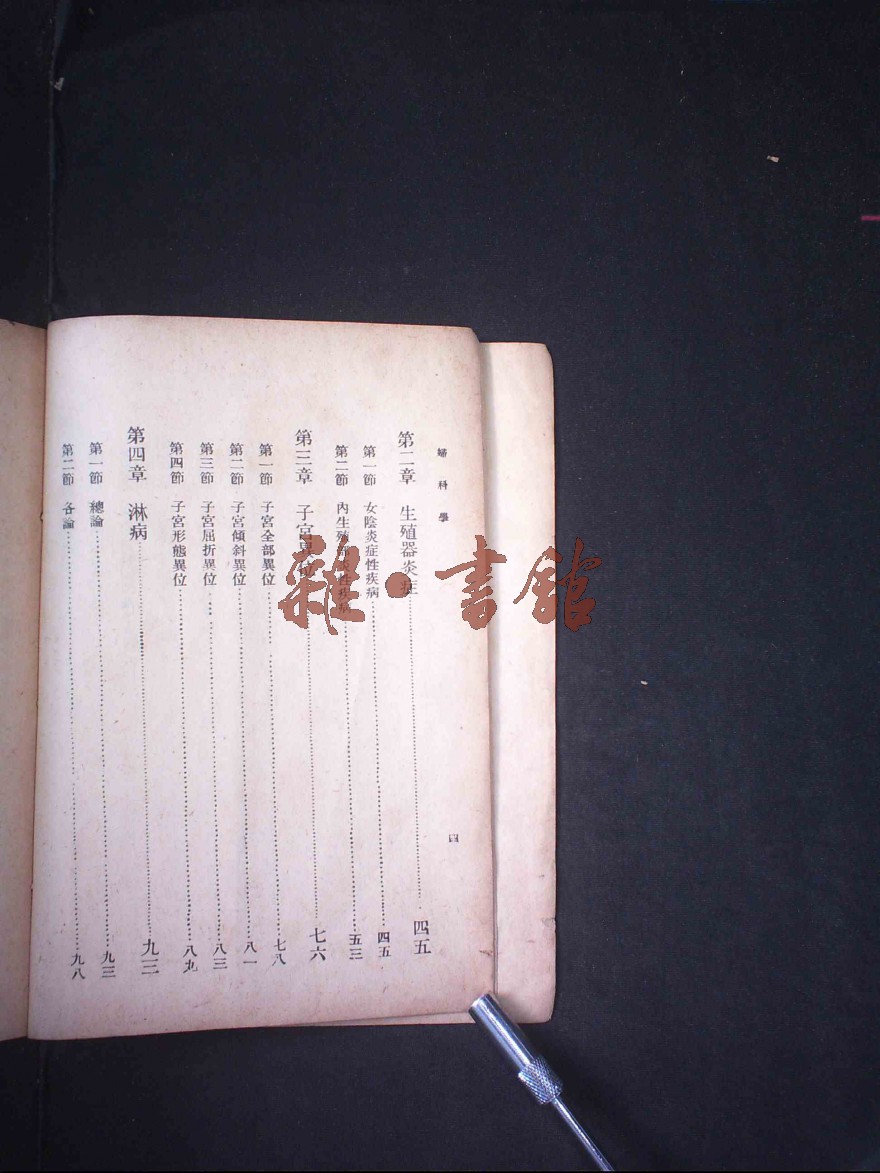 婦科學
四
第二章 生殖器炎症 四五
第一節 女陰炎症性疾病 四五
第二節 內生殖部炎性疾病 五三
第三章 子宮異位 七六
第一節 子宮全部異位 七八
第二節 子宮傾斜異位 八一
第三節 子宮屈折異位 八三
第四節 子宮形態異位 八九
第四章 淋病 九三
第一節 總論 九三
第二節 各論 九八
雜·書館